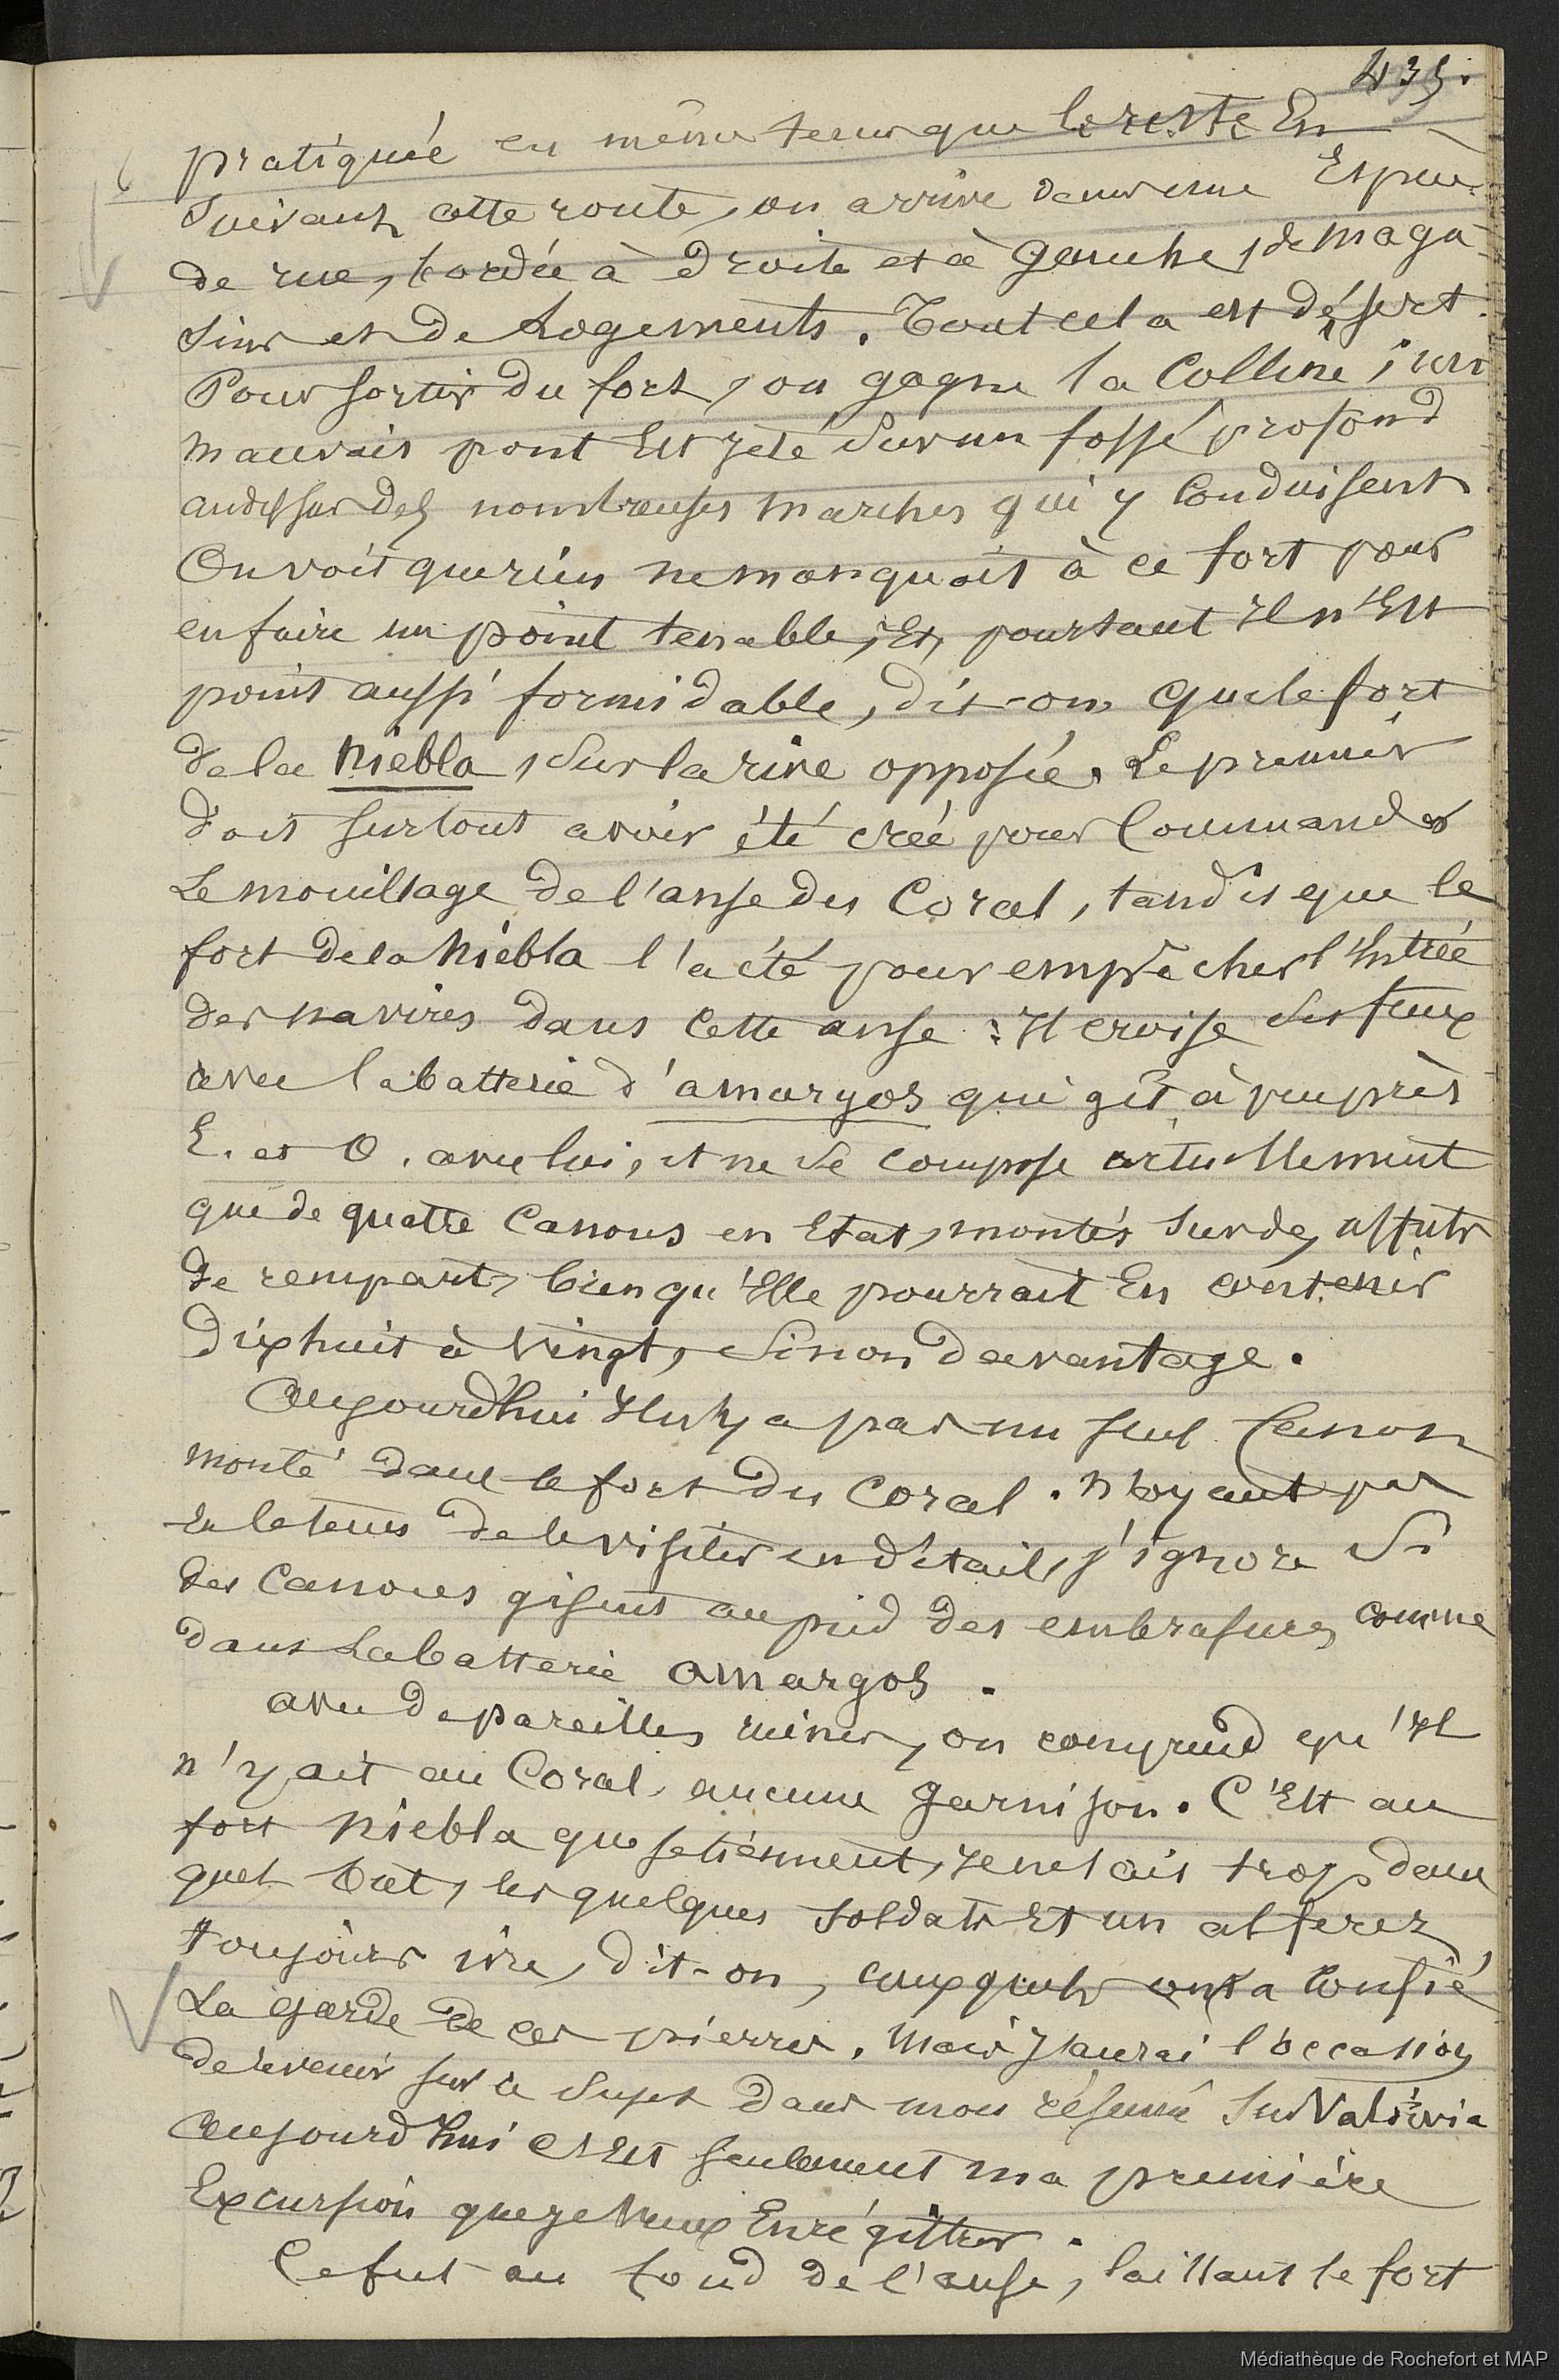 435.
pratiquée en même tems que le reste En
suivant cette route, on arrive dans une Espèce
de rue, bordée à droite et à gauche, de maga-
sins et de Logements. Tout cela est désert.
Pour sortir du fort, on gagne la Colline, un
mauvais pont Est jeté sur un fossé profond
audessus des nombreuses marches qui y Conduisent
On voit que rien ne manquait à ce fort pour
en faire un point tenable, Et, pourtant Il n'Est
point aussi formidable, dit-on, que le fort
de la Niebla, sur la rive opposée. Le premier
doit surtout avoir été créé pour Commander
Le mouillage de l'anse du Coral, tandis que le
fort de la Niebla l'a été pour empêcher l'Entrée
des navires dans Cette anse : Il croise ses feux
avec la batterie d'amargos qui gît à peu près
E. et O. avec lui, et ne se compose actuellement
que de quatre Canons en Etat, montés sur des affuts
de rempart, bien qu'Elle pourrait En contenir
dix huit à vingt, Sinon davantage.
Aujourd'hui Il n'y a pas un seul Canon
monté dans le fort du Coral. N'ayant pas
eu le tems de le visiter en détail, j'ignore Si
des Canons gisent au pied des embrasures comme
dans La batterie Amargos.
avec de pareilles ruines, on comprend qu'Il
n'y ait au Coral aucune garnison. C'Est au
fort Niebla que se tiennent, je ne sais trop dans
quel but, les quelques soldats Et un alferez
toujours ivre, dit-on, auxquels on a Confié
La garde de ces pierres. Mais J'aurai l'occasion
de revenir sur ce Sujet dans mon résumé sur Valdivia
Aujourd'hui c'Est seulement ma première
Excursion que je veux Enrégistrer.
Ce fut au fond de l'anse, laissant le fort
Médiathèque de Rochefort et MAP